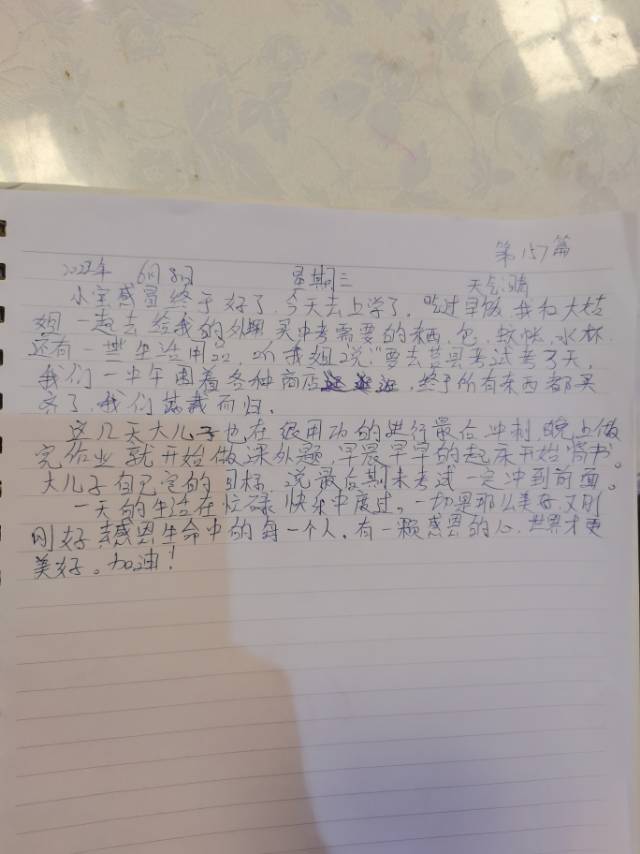 第157篇
2022年 6月8日 星期三 天气:晴
小宝感冒终于好了,今天去上学了。吃过早饭,我和大姑
姐一起去给我的外甥买中考需要的东西,包、蚊帐、水杯,
还有一些生活用品,我姐说:“要去莒县考试考3天,
我们一中午围着各种商店,终于所有东西都买
齐了,我们满载而归。
这几天大儿子也在很用功的进行最后冲刺,晚上做
完作业就开始做课外题,早晨早早的起床开始背书。
大儿子自己定的目标,说最后期末考试一定冲到前面。
一天的生活在忙碌快乐中度过。一切是那么美好,又刚
刚好,感恩生命中的每一个人。有一颗感恩的心,世界才更
美好。加油!